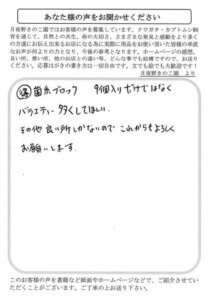 あなた様の声をお聞かせください
月夜野きのこ園ではお客様の声を募集しています。クワガタ・カブトムシ飼
育を通じて、自然との共生、命の大切さ、さまざまな発見と感動をより多く
の方達にお伝え出来るお店になる為に実際に用品をお使い頂いた皆様の率直
なお声が何よりの力となり、今後の参考となります。ホームページの感想、
良い所、悪い所、他のお店との違い等、どんな事でも結構ですので、お送り
ください。応募はがきの書き方は一切自由です。文でも絵でも大歓迎です！
月夜野きのこ園 より
菌糸ブロック 9個入りだけではなく
バラエティー多くしてほしい。
その他良い所しかないので これからもよろしく
お願いします。
このお客様の声を書籍など紙面やホームページなどで、ご紹介させていた
だくことがございます。ご了承の上お送り下さい。